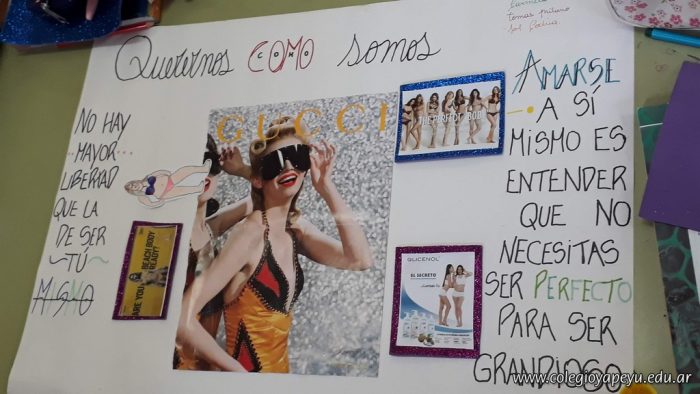 Carmela
sol
Querernos COMO somos
NO HAY
MAYOR
LIBERTAD
QUE LA
DE SER
TÚ
MISMO
GUCCI
THE PERFECT BODY
ARE YOU
BEACH BODY
READY?
GLICENOL
EL SECRETO
AMARSE
A SÍ
MISMO ES
ENTENDER
QUE NO
NECESITAS
SER PERFECTO
PARA SER
GRANDIOSO
www.colegioyapeyu.edu.ar